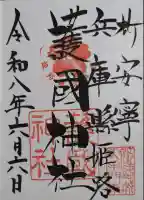 祈安寧
兵庫縣姫路
護國神社
令和八年六月六日